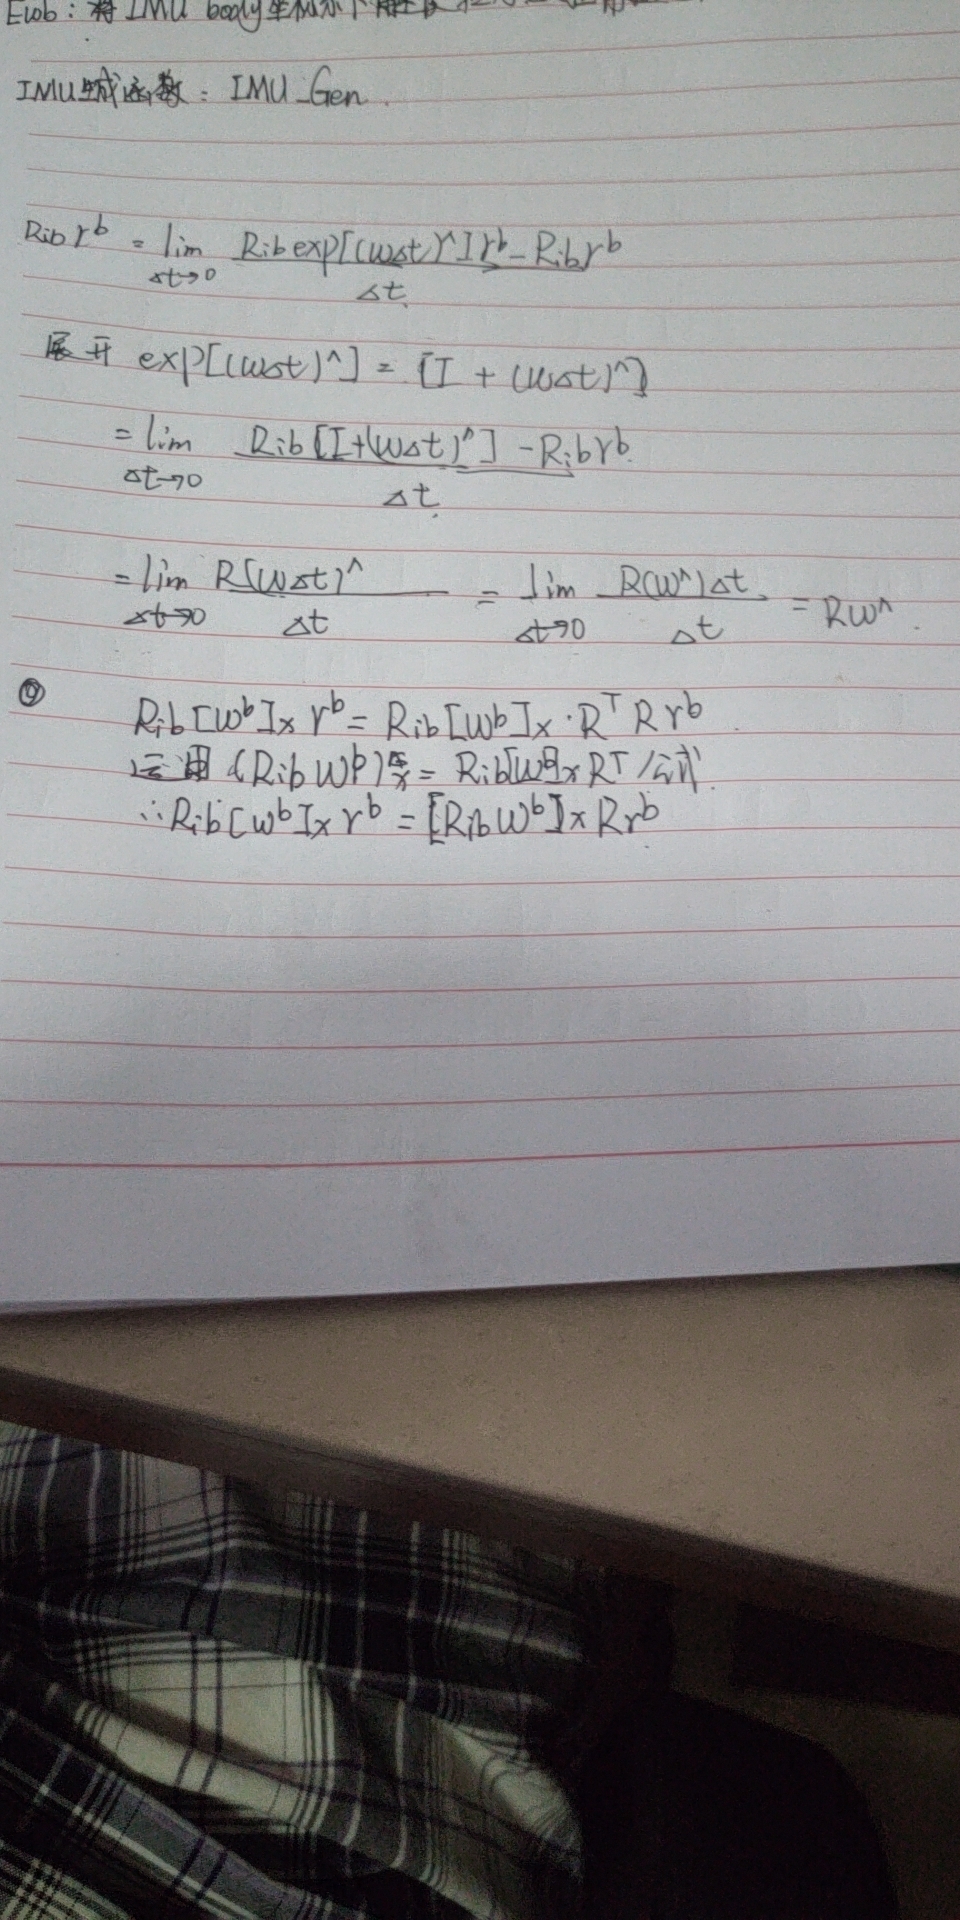 Ewb : 将 IMU body 坐标系下
IMU生成函数 : IMU_Gen.
Rib r^b = lim Δt→0 Rib exp[(wΔt)^] r^b - Rib r^b / Δt
展开 exp[(wΔt)^] = [I + (wΔt)^]
= lim Δt→0 Rib [I+(wΔt)^] - Rib r^b / Δt
= lim Δt→0 R(wΔt)^ / Δt = lim Δt→0 R(w^)Δt / Δt = Rw^.
② Rib [w^b]x r^b = Rib [w^b]x · R^T R r^b
运用 (Rib w^b)x = Rib[w^b]x R^T 公式.
∴ Rib [w^b]x r^b = [Rib w^b]x R r^b